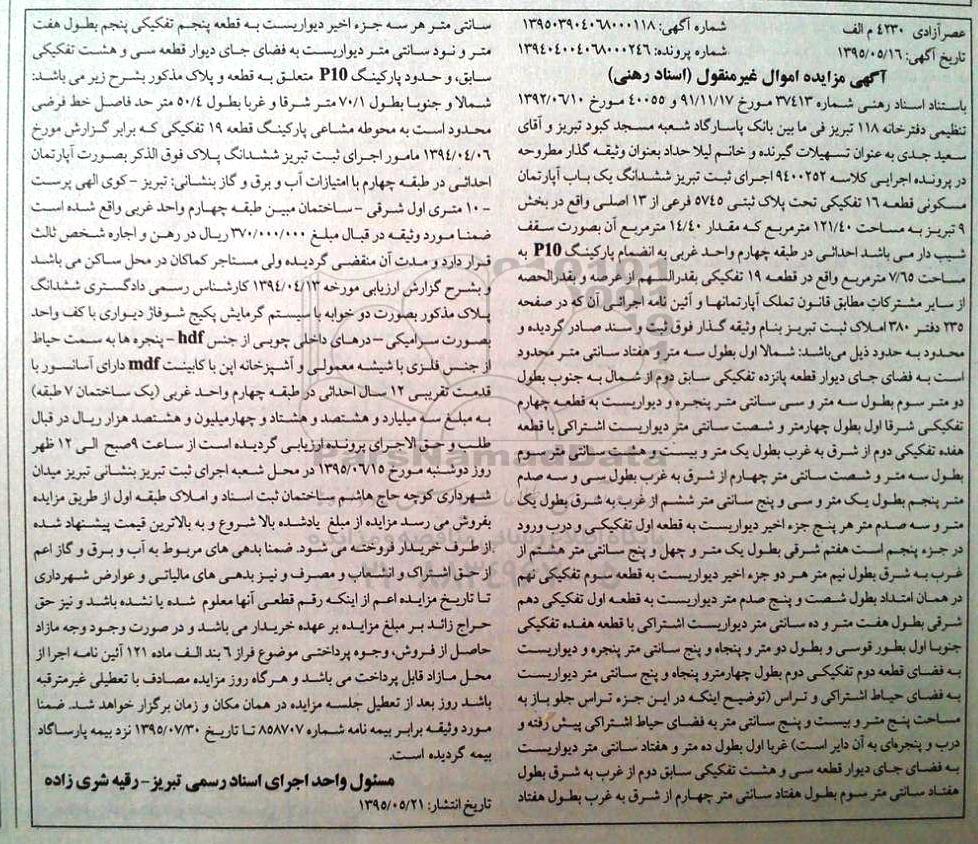 عصرآزادی ۴۲۳۰ م الف شماره آگهی: ۱۳۹۵۰۳۹۰۴۰۶۸۰۰۰۱۱۸
تاریخ آگهی: ۱۳۹۵/۰۵/۱۶ شماره پرونده: ۱۳۹۴۰۴۰۰۴۰۶۸۰۰۰۲۴۶
آگهی مزایده اموال غیرمنقول (اسناد رهنی)
باستناد اسناد رهنی شماره ۳۷۴۱۳ مورخ ۹۱/۱۱/۱۷ و ۴۰۰۵۵ مورخ ۱۳۹۲/۰۶/۱۰
تنظیمی دفترخانه ۱۱۸ تبریز فی ما بین بانک پاسارگاد شعبه مسجد کبود تبریز و آقای
سعید جدی به عنوان تسهیلات گیرنده و خانم لیلا حداد بعنوان وثیقه گذار مطروحه
در پرونده اجرایی کلاسه ۹۴۰۰۲۵۲ اجرای ثبت تبریز ششدانگ یک باب آپارتمان
مسکونی قطعه ۱۶ تفکیکی تحت پلاک ثبتی ۵۷۴۵ فرعی از ۱۳ اصلی واقع در بخش
۹ تبریز به مساحت ۱۲۱/۴۰ مترمربع که مقدار ۱۴/۴۰ مترمربع آن بصورت سقف
شیب دار می باشد احداثی در طبقه چهارم واحد غربی به انضمام پارکینگ P10 به
مساحت ۷/۶۵ مترمربع واقع در قطعه ۱۹ تفکیکی بقدرالسهم از عرصه و بقدرالحصه
از سایر مشترکات مطابق قانون تملک آپارتمانها و آئین نامه اجرائی آن که در صفحه
۲۳۵ دفتر ۳۸۰ املاک ثبت تبریز بنام وثیقه گذار فوق ثبت و سند صادر گردیده و
محدود به حدود ذیل می‌باشد: شمالا اول بطول سه متر و هفتاد سانتی متر محدود
است به فضای جای دیوار قطعه پانزده تفکیکی سابق دوم از شمال به جنوب بطول
دو متر سوم بطول سه متر و سی سانتی متر پنجره و دیواریست به قطعه چهارم
تفکیکی شرقا اول بطول چهارمتر و شصت سانتی متر دیواریست اشتراکی با قطعه
هفده تفکیکی دوم از شرق به غرب بطول یک متر و بیست و هشت سانتی متر سوم
بطول سه متر و شصت سانتی متر چهارم از شرق به غرب بطول سی و سه صدم
متر پنجم بطول یک متر و سی و پنج سانتی متر ششم از غرب به شرق بطول یک
متر و سه صدم متر هر پنج جزء اخیر دیواریست به قطعه اول تفکیکی و درب ورود
در جزء پنجم است هفتم شرقی بطول یک متر و چهل و پنج سانتی متر هشتم از
غرب به شرق بطول نیم متر هر دو جزء اخیر دیواریست به قطعه سوم تفکیکی نهم
در همان امتداد بطول شصت و پنج صدم متر دیواریست به قطعه اول تفکیکی دهم
شرقی بطول هفت متر و ده سانتی متر دیواریست اشتراکی با قطعه هفده تفکیکی
جنوبا اول بطور قوسی و بطول دو متر و پنجاه و پنج سانتی متر پنجره و دیواریست
به فضای قطعه دوم تفکیکی دوم بطول چهارمترو پنجاه و پنج سانتی متر دیواریست
به فضای حیاط اشتراکی و تراس (توضیح اینکه در این جزء تراس جلو باز به
مساحت پنج متر و بیست و پنج سانتی متر به فضای حیاط اشتراکی پیش رفته و
درب و پنجره‌ای به آن دایر است) غربا اول بطول ده متر و هفتاد سانتی متر دیواریست
به فضای جای دیوار قطعه سی و هشت تفکیکی سابق دوم از غرب به شرق بطول
هفتاد سانتی متر سوم بطول هفتاد سانتی متر چهارم از شرق به غرب بطول هفتاد
سانتی متر هر سه جزء اخیر دیواریست به قطعه پنجم تفکیکی پنجم بطول هفت
متر و نود سانتی متر دیواریست به فضای جای دیوار قطعه سی و هشت تفکیکی
سابق، و حدود پارکینگ P10 متعلق به قطعه و پلاک مذکور بشرح زیر می باشد:
شمالا و جنوبا بطول ۷۰/۱ متر شرقا و غربا بطول ۵۰/۴ متر حد فاصل خط فرضی
محدود است به محوطه مشاعی پارکینگ قطعه ۱۹ تفکیکی که برابر گزارش مورخ
۱۳۹۴/۰۴/۰۶ مامور اجرای ثبت تبریز ششدانگ پلاک فوق الذکر بصورت آپارتمان
احداثی در طبقه چهارم با امتیازات آب و برق و گاز بنشانی: تبریز – کوی الهی پرست
– ۱۰ متری اول شرقی – ساختمان مبین طبقه چهارم واحد غربی واقع شده است
ضمنا مورد وثیقه در قبال مبلغ ۳۷۰/۰۰۰/۰۰۰ ریال در رهن و اجاره شخص ثالث
قرار دارد و مدت آن منقضی گردیده ولی مستاجر کماکان در محل ساکن می باشد
و بشرح گزارش ارزیابی مورخه ۱۳۹۴/۰۴/۱۳ کارشناس رسمی دادگستری ششدانگ
پلاک مذکور بصورت دو خوابه با سیستم گرمایش پکیج شوفاژ دیواری با کف واحد
بصورت سرامیکی – درهای داخلی چوبی از جنس hdf – پنجره ها به سمت حیاط
از جنس فلزی با شیشه معمولی و آشپزخانه اپن با کابینت mdf دارای آسانسور با
قدمت تقریبی ۱۲ سال احداثی در طبقه چهارم واحد غربی (یک ساختمان ۷ طبقه)
به مبلغ سه میلیارد و هشتصد و هشتاد و چهارمیلیون و هشتصد هزار ریال در قبال
طلب و حق الاجرای پرونده ارزیابی گردیده است از ساعت ۹صبح الی ۱۲ ظهر
روز دوشنبه مورخ ۱۳۹۵/۰۶/۱۵ در محل شعبه اجرای ثبت تبریز بنشانی تبریز میدان
شهرداری کوچه حاج هاشم ساختمان ثبت اسناد و املاک طبقه اول از طریق مزایده
بفروش می رسد مزایده از مبلغ یادشده بالا شروع و به بالاترین قیمت پیشنهاد شده
از طرف خریدار فروخته می شود. ضمنا بدهی های مربوط به آب و برق و گاز اعم
از حق اشتراک و انشعاب و مصرف و نیز بدهی های مالیاتی و عوارض شهرداری
تا تاریخ مزایده اعم از اینکه رقم قطعی آنها معلوم شده یا نشده باشد و نیز حق
حراج زائد بر مبلغ مزایده بر عهده خریدار می باشد و در صورت وجود وجه مازاد
حاصل از فروش، وجوه پرداختی موضوع فراز ۶ بند الف ماده ۱۲۱ آئین نامه اجرا از
محل مازاد قابل پرداخت می باشد و هرگاه روز مزایده مصادف با تعطیلی غیرمترقبه
باشد روز بعد از تعطیل جلسه مزایده در همان مکان و زمان برگزار خواهد شد. ضمنا
مورد وثیقه برابر بیمه نامه شماره ۸۵۸۷۰۷ تا تاریخ ۱۳۹۵/۰۷/۳۰ نزد بیمه پارساگاد
بیمه گردیده است.
مسئول واحد اجرای اسناد رسمی تبریز– رقیه شری زاده
تاریخ انتشار: ۱۳۹۵/۰۵/۲۱
ParsNamadData